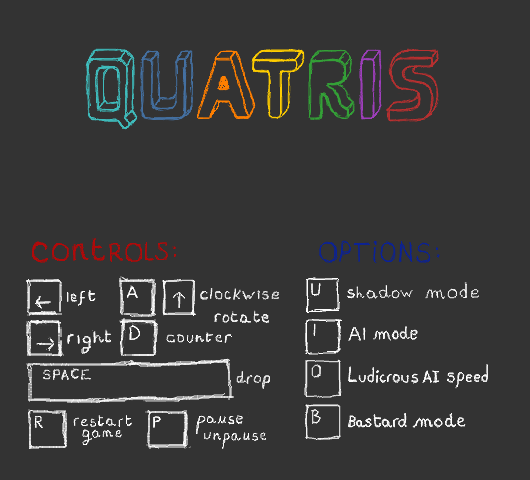 QUATRIS
CONTROLS:
← left
A ↑ clockwise
rotate
→ right
D counter
SPACE drop
R restart
game
P pause
unpause
OPTIONS:
U shadow mode
I AI mode
O Ludicrous AI speed
B Bastard mode